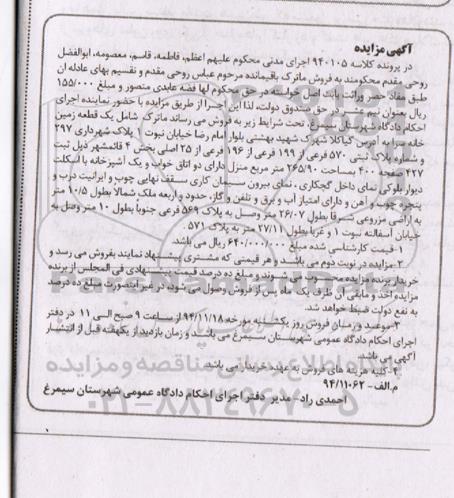 آگهی مزایده
در پرونده کلاسه ۹۴۰۱۰۵ اجرای مدنی محکوم علیهم اعظم، فاطمه، قاسم، معصومه، ابوالفضل
روحی مقدم محکومند به فروش ماترک باقیمانده مرحوم عباس روحی مقدم و تقسیم بهای عادله ان
طبق مفاد حصر وراثت بابت اصل خواسته در حق محکوم لها فضه عابدی منصور و مبلغ ۱۵۵/۰۰۰
ریال بعنوان نیم عشر در حق صندوق دولت، لذا این اجرا از طریق مزایده با حضور نماینده اجرای
احکام دادگاه شهرستان سیمرغ، تحت شرایط زیر به فروش می رساند ماترک شامل یک قطعه زمین
خانه سرا به آدرس کیاکلا شهرک شهید بهشتی بلوار امام رضا خیابان نبوت ۱ پلاک شهرداری ۲۹۷
و شماره پلاک ثبتی ۵۷۰ فرعی از ۱۹۹ فرعی از ۱۹۶ فرعی از ۲۵ اصلی بخش ۴ قائمشهر ذیل ثبت
۴۲۷ صفحه ۴۰۰ بمساحت ۲۶۵/۹۰ متر مربع منزل دارای دو اتاق خواب و یک آشپزخانه با اسکلت
دیوار بلوکی نمای داخل گچکاری ، نمای بیرون سیمان کاری سقف نهایی چوب و ایرانیت درب و
پنجره چوب و آهن و دارای امتیاز آب و برق و تلفن و گاز، حدود و اربعه ملک شمالا بطول ۱۰/۵ متر
به اراضی مزروعی شرقا بطول ۲۶/۰۷ متر وصل به پلاک ۵۶۹ فرعی جنوبا بطول ۱۰ متر وصل به
خیابان آسفالته نبوت ۱ و غربا بطول ۲۷/۱۱ متر به پلاک ۵۷۱ .
۱-قیمت کارشناسی شده مبلغ ۶۴۰/۰۰۰/۰۰۰ ریال می باشد.
۲-مزایده در نوبت دوم می باشد و هر قیمتی که مشتری پیشنهاد نمایند بفروش می رسد و
خریدار برنده مزایده محسوب می شوند و مبلغ ده درصد قیمت پیشنهادی فی المجلس از برنده
مزایده اخذ و مابقی آن ظرف یک ماه پس از فروش وصول می شود، در غیر اینصورت مبلغ ده درصد
به نفع دولت ضبط خواهد شد.
۳-موعد و زمان فروش روز یکشنبه مورخه ۹۴/۱۱/۱۸ از ساعت ۹ صبح الی ۱۱ در دفتر
اجرای احکام دادگاه عمومی شهرستان سیمرغ می باشد و زمان بازدید از یکهفته قبل از انتشار
آگهی می باشد.
۴-کلیه هزینه های فروش به عهده خریدار می باشد.
م.الف - ۹۴/۱۱۰۶۲
احمدی راد- مدیر دفتر اجرای احکام دادگاه عمومی شهرستان سیمرغ